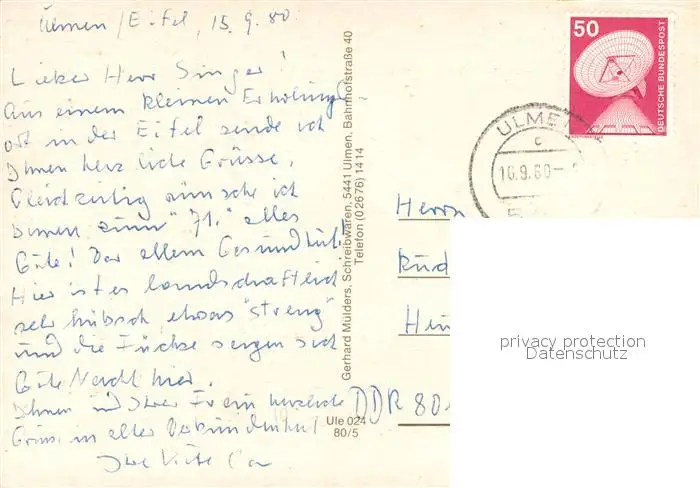 Ulmen/Eifel, 15.9.80
Lieber Herr Singer!
Aus einem kleinen Erholungs-
ort in der Eifel sende ich
Ihnen herzliche Grüsse.
Gleichzeitig wünsche ich
Ihnen zum "71." alles
Gute! Vor allem Gesundheit!
Hier ist es landschaftlich
sehr hübsch, etwas "streng"
und die Füchse sagen sich
Gute Nacht hier.
Ihnen und Ihrer Frau herzliche
Grüsse in alter Verbundenheit
Ihre
Gerhard Mülders, Schreibwaren, 5441 Ulmen, Bahnhofstraße 40
Telefon (02676) 1414
Ule 024
80/5
50
DEUTSCHE BUNDESPOST
ULME
c
16.9.80
5
Herrn
DDR 80
privacy protection
Datenschutz